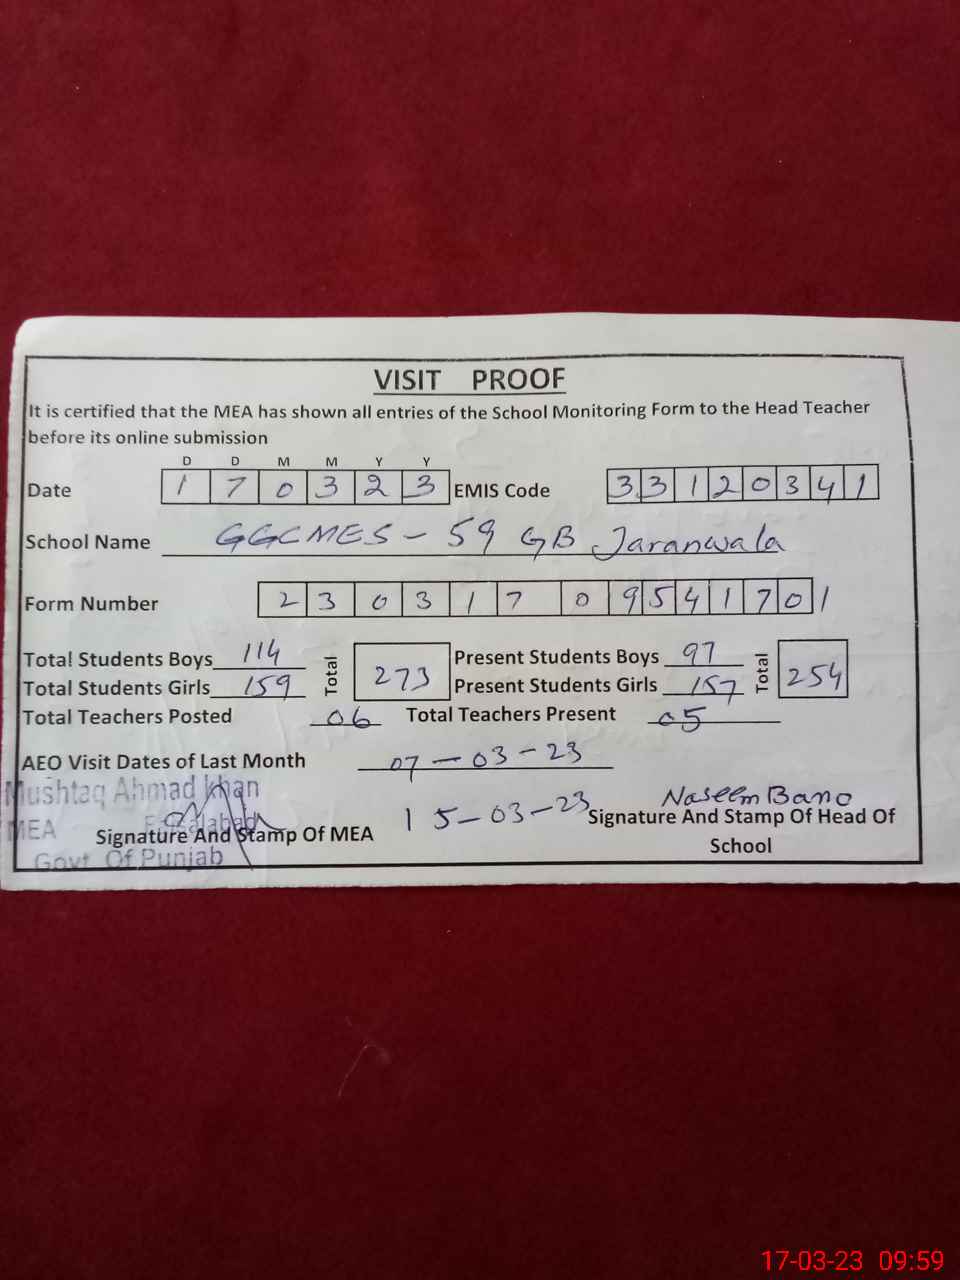 VISIT PROOF
It is certified that the MEA has shown all entries of the School Monitoring Form to the Head Teacher
before its online submission
D D M M Y Y
Date 1 7 0 3 2 3 EMIS Code 3 3 1 2 0 3 4 1
School Name GGCMES - 59 GB Jaranwala
Form Number 2 3 0 3 1 7 0 9 5 4 1 7 0 1
Total Students Boys 114 Total 273 Present Students Boys 97 Total 254
Total Students Girls 159 Present Students Girls 157
Total Teachers Posted 06 Total Teachers Present 05
AEO Visit Dates of Last Month 07-03-23
15-03-23
Mushtaq Ahmad khan
MEA Faisalabad
Govt Of Punjab
Signature And Stamp Of MEA
Naseem Bano
Signature And Stamp Of Head Of
School
17-03-23 09:59